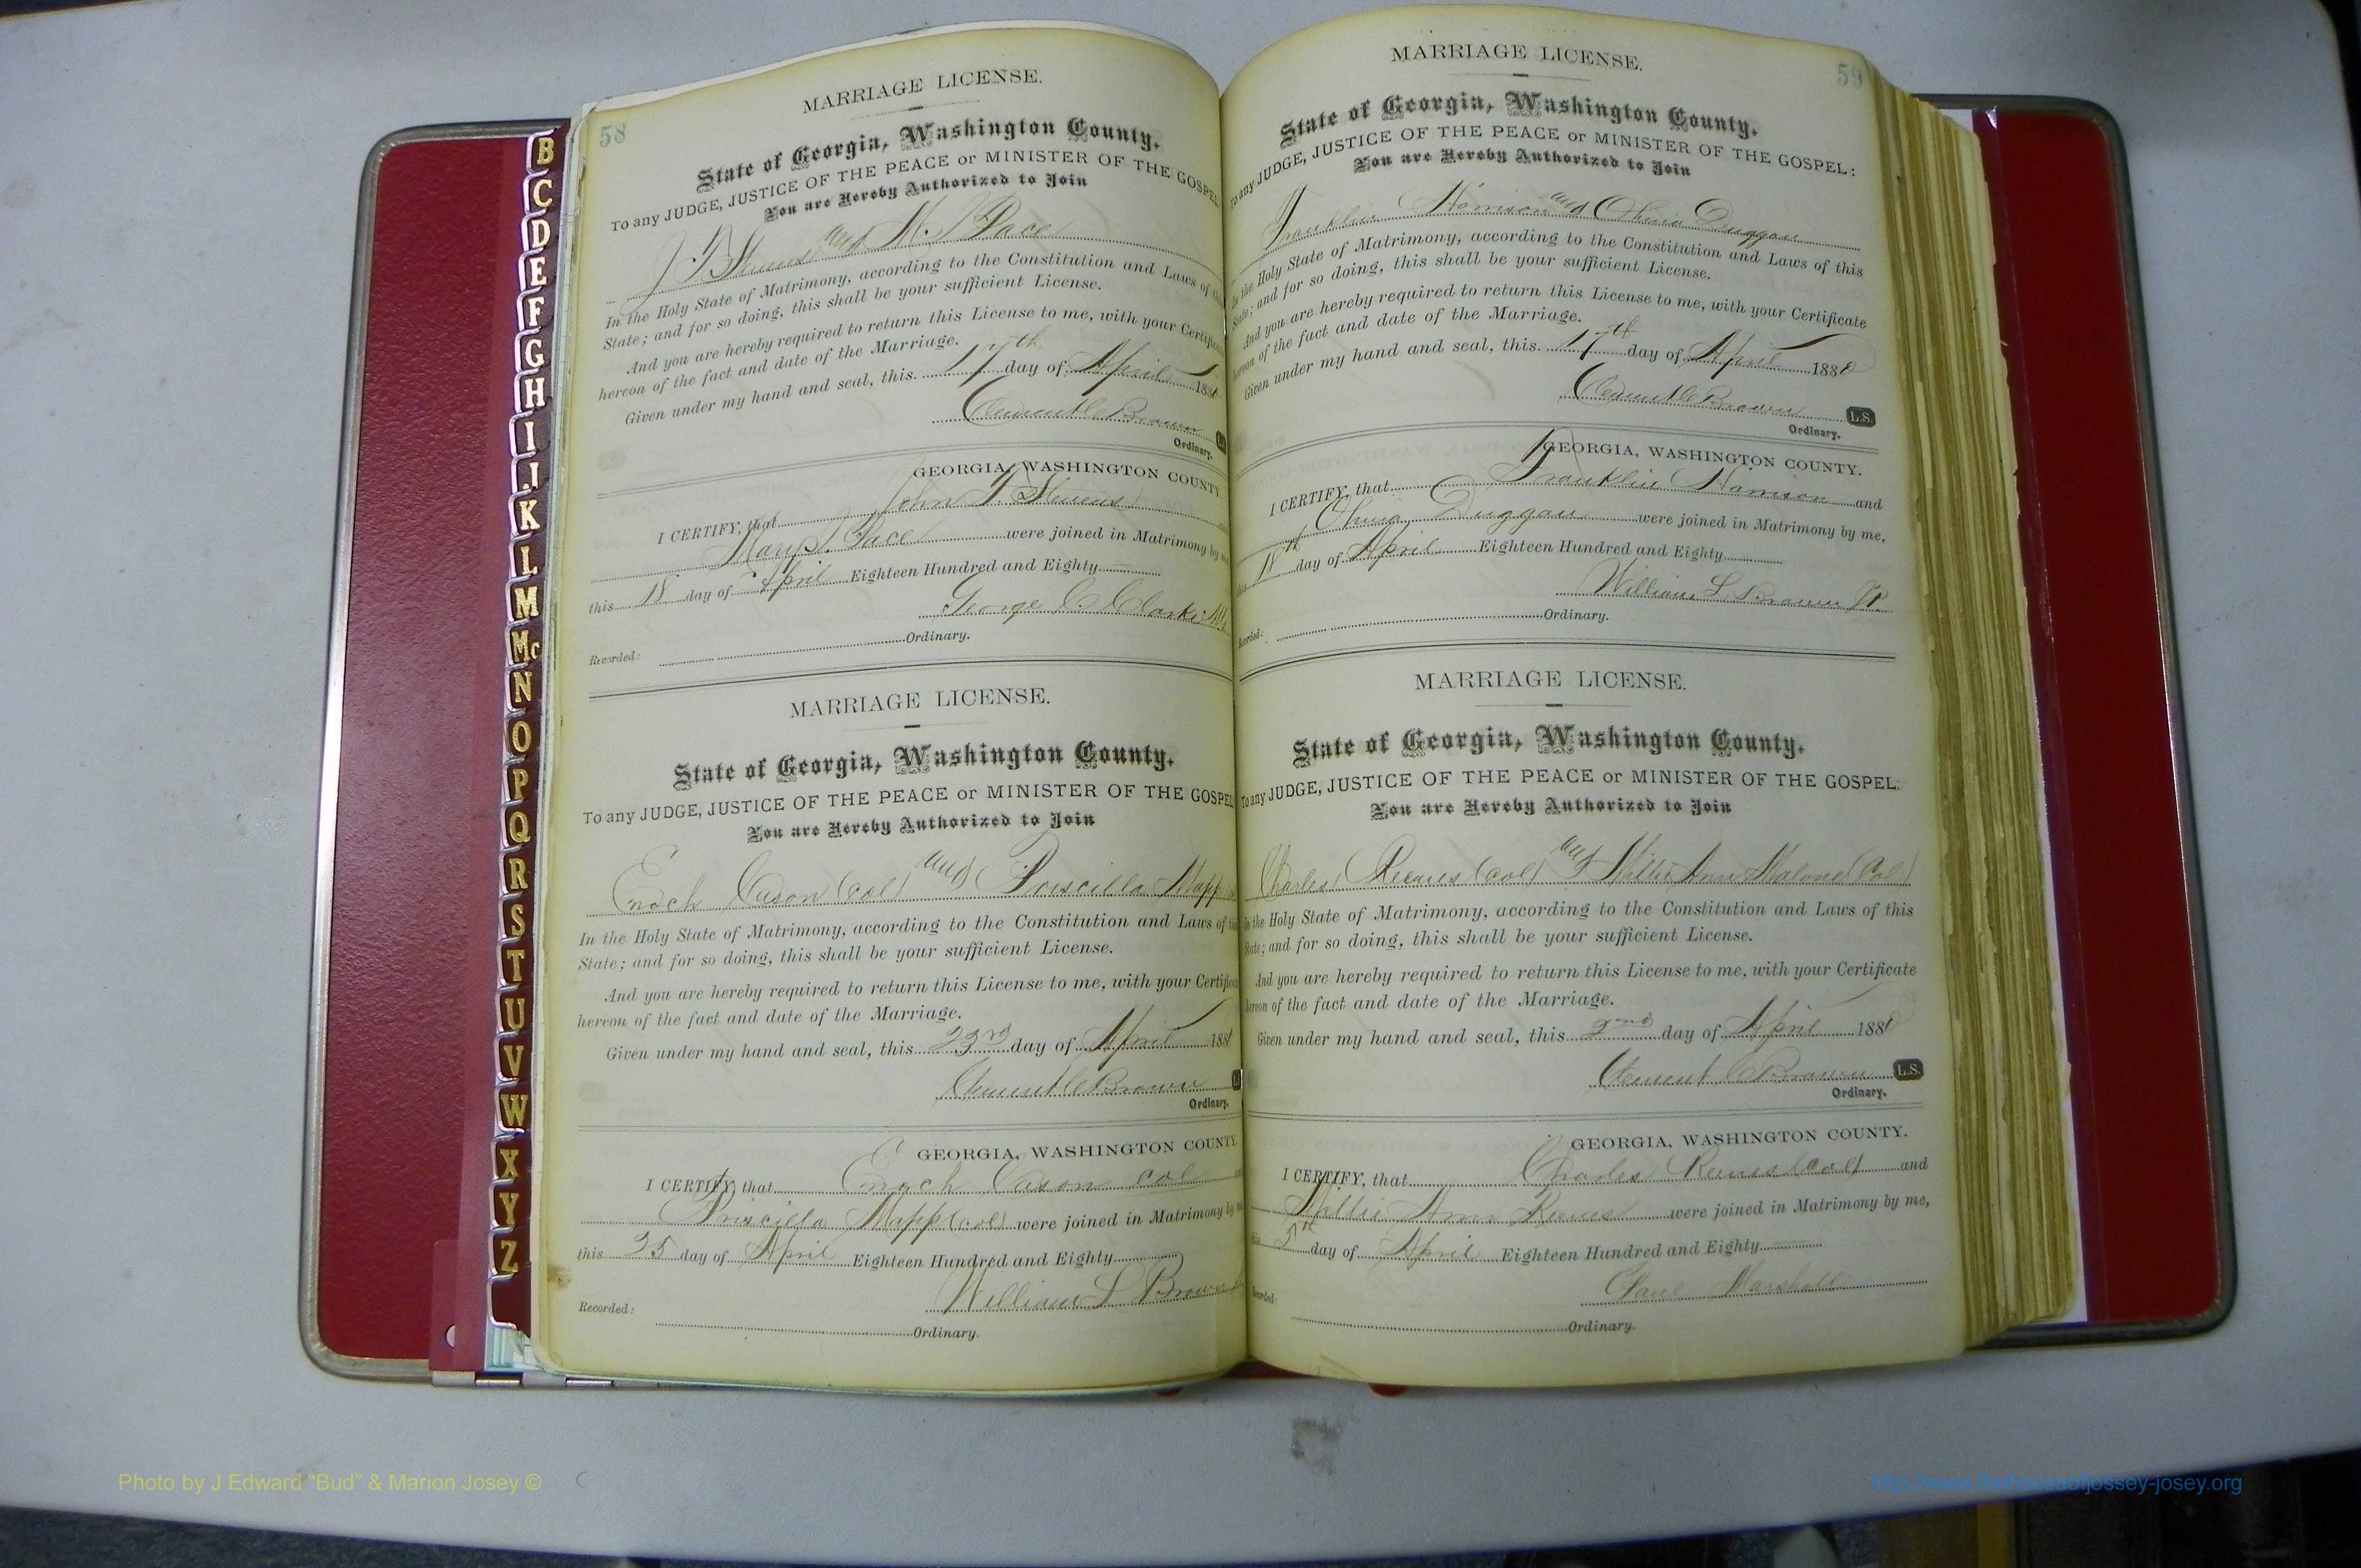 B
C
D
E
F
G
H
I
J
K
L
M
Mc
N
O
P
Q
R
S
T
U
V
W
X
Y
Z
58
MARRIAGE LICENSE.
State of Georgia, Washington County.
To any JUDGE, JUSTICE OF THE PEACE or MINISTER OF THE GOSPEL
You are Hereby Authorized to Join
J T Stevens and M. J Pace
In the Holy State of Matrimony, according to the Constitution and Laws of
State; and for so doing, this shall be your sufficient License.
And you are hereby required to return this License to me, with your Certific
hereon of the fact and date of the Marriage.
Given under my hand and seal, this 17th day of April 188
Clement C Brown
Ordinary.
GEORGIA, WASHINGTON COUNTY.
I CERTIFY, that John T Stevens
Mary J. Pace were joined in Matrimony by
this 18 day of April Eighteen Hundred and Eighty
George C Clarke
Recorded: Ordinary.
MARRIAGE LICENSE.
State of Georgia, Washington County.
To any JUDGE, JUSTICE OF THE PEACE or MINISTER OF THE GOSPEL
You are Hereby Authorized to Join
Enoch Cason (col) and Priscilla Mapp
In the Holy State of Matrimony, according to the Constitution and Laws of
State; and for so doing, this shall be your sufficient License.
And you are hereby required to return this License to me, with your Certific
hereon of the fact and date of the Marriage.
Given under my hand and seal, this 23rd day of April 188
Clement C Brown
Ordinary.
GEORGIA, WASHINGTON COUNTY
I CERTIFY, that Enoch Cason col
Priscilla Mapp (col) were joined in Matrimony by
this 25 day of April Eighteen Hundred and Eighty
William L Brown
Recorded:
Ordinary.
59
MARRIAGE LICENSE.
State of Georgia, Washington County.
To any JUDGE, JUSTICE OF THE PEACE or MINISTER OF THE GOSPEL:
You are Hereby Authorized to Join
Franklin Harrison and Duggan
In the Holy State of Matrimony, according to the Constitution and Laws of this
State; and for so doing, this shall be your sufficient License.
And you are hereby required to return this License to me, with your Certificate
hereon of the fact and date of the Marriage.
Given under my hand and seal, this 17th day of April 1880
Clement C Brown L.S.
Ordinary.
GEORGIA, WASHINGTON COUNTY.
I CERTIFY, that Franklin Harrison and
Duggan were joined in Matrimony by me,
this 18th day of April Eighteen Hundred and Eighty
William L. Brown JP.
Recorded: Ordinary.
MARRIAGE LICENSE.
State of Georgia, Washington County.
To any JUDGE, JUSTICE OF THE PEACE or MINISTER OF THE GOSPEL:
You are Hereby Authorized to Join
Charles Reeves (col) and Millie Ann Malone (Col)
In the Holy State of Matrimony, according to the Constitution and Laws of this
State; and for so doing, this shall be your sufficient License.
And you are hereby required to return this License to me, with your Certificate
hereon of the fact and date of the Marriage.
Given under my hand and seal, this 2nd day of April 1880
Clement C Brown L.S.
Ordinary.
GEORGIA, WASHINGTON COUNTY.
I CERTIFY, that Charles Reeves (col) and
Millie Ann Reeves were joined in Matrimony by me,
this 5th day of April Eighteen Hundred and Eighty
Marshall
Recorded:
Ordinary.
Photo by J Edward “Bud” & Marion Josey ©
http://www.thehouseofjossey-josey.org